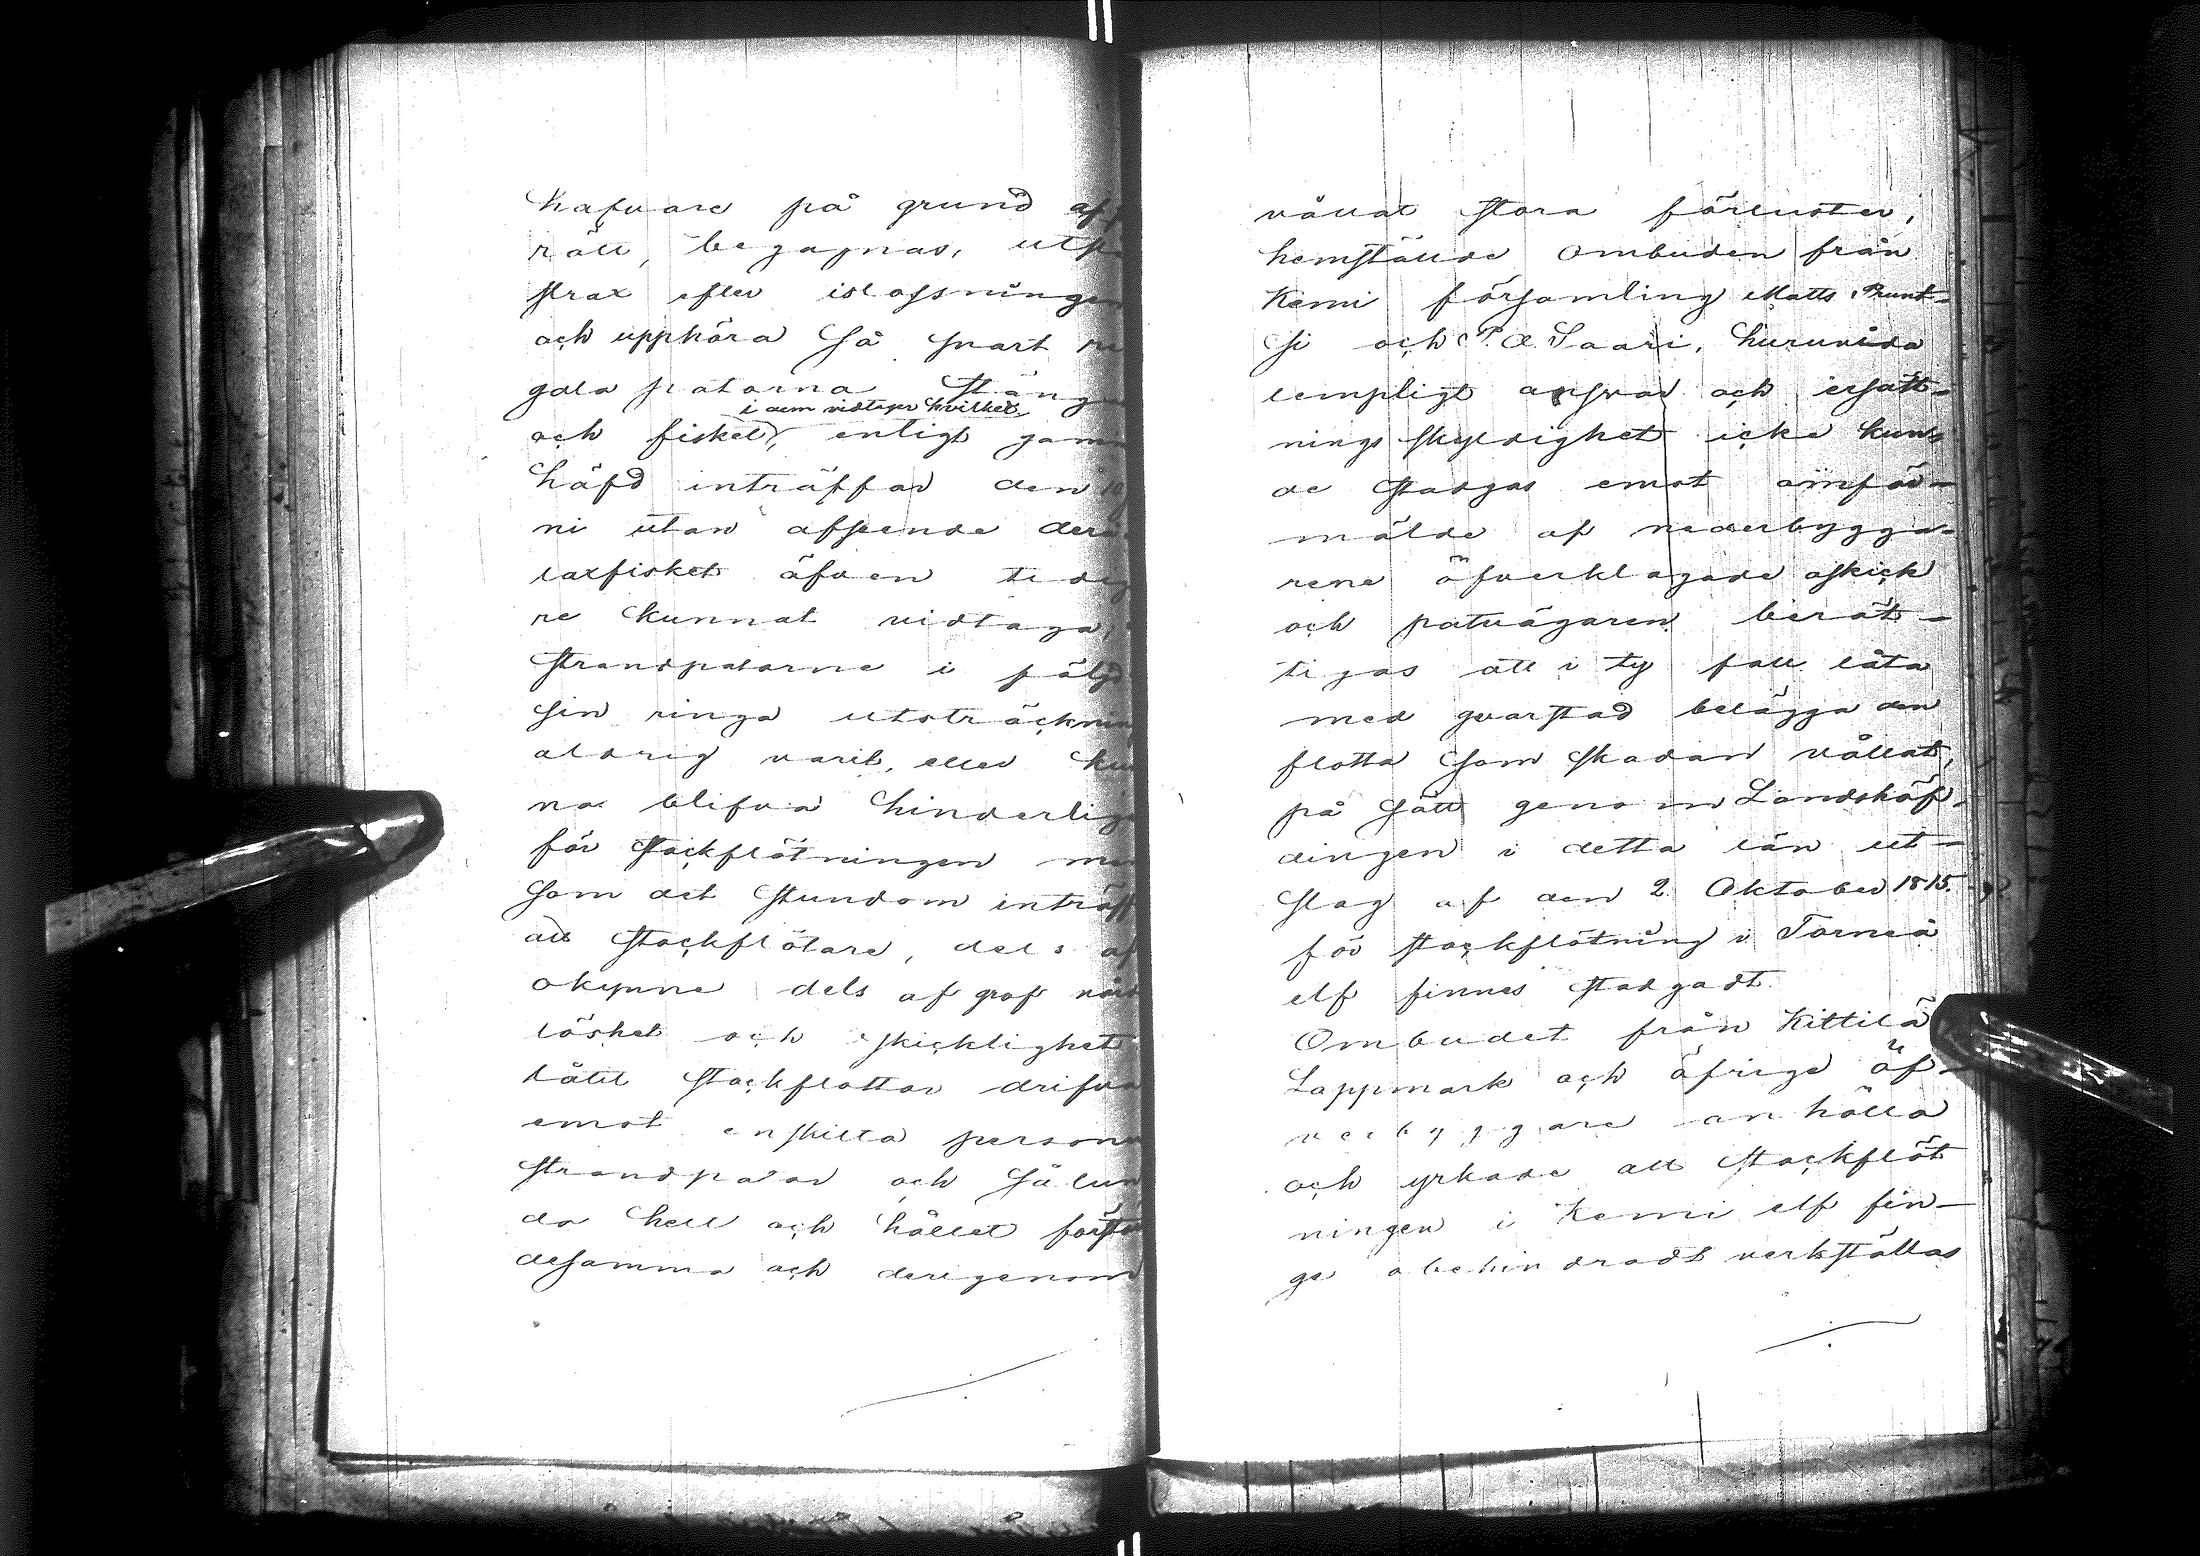 hafvare på grund af
rätt, begagnas, utp
strax efter islossninge
och upphöra så snart
gala patorna stäng
i dem vidtager hvilket
och fisket, enligt gam
häfd inträffar den 10
ni utan afseende der
laxfisket äfven tidig
re kunnat vidtaga,
strandpatorne i följd
sin ringa utsträckning
aldrig varit, eller ku
na blifva hinderlig
för stockflötningen me
som det stundom inträff
att stockflötare, dels af
okynne dels af grof vård
löshet och oskicklighet
låtit stockflottar drifva
emot enskilta person
strandpator och sålun
da helt och hållet förstö
desamma och derigenom
vållat stora förluster,
hemställde ombuden från
Kemi församling Matts Runt-
si och P. A. Saari, huruvida
lempligt ansvar och ersätt-
nings skyldighet icke kun-
de stadgas emot omför-
mälde af nederbygga-
rene öfverklagade oskick
och patuägaren berät-
tigas att i ty fall låta
med qvarstad belägga den
flotta som skadan vållat,
på sätt genom Landshöf-
dingen i detta län ut-
slag af den 2 Oktober 1815
för stockflötning i Torneå
elf finnes stadgadt.
Ombudet från Kittilä
Lappmark och öfrige öf-
verbyggare anhölla
och yrkade att stockflöt
ningen i Kemi elf fin-
ge obehindradt verkställas